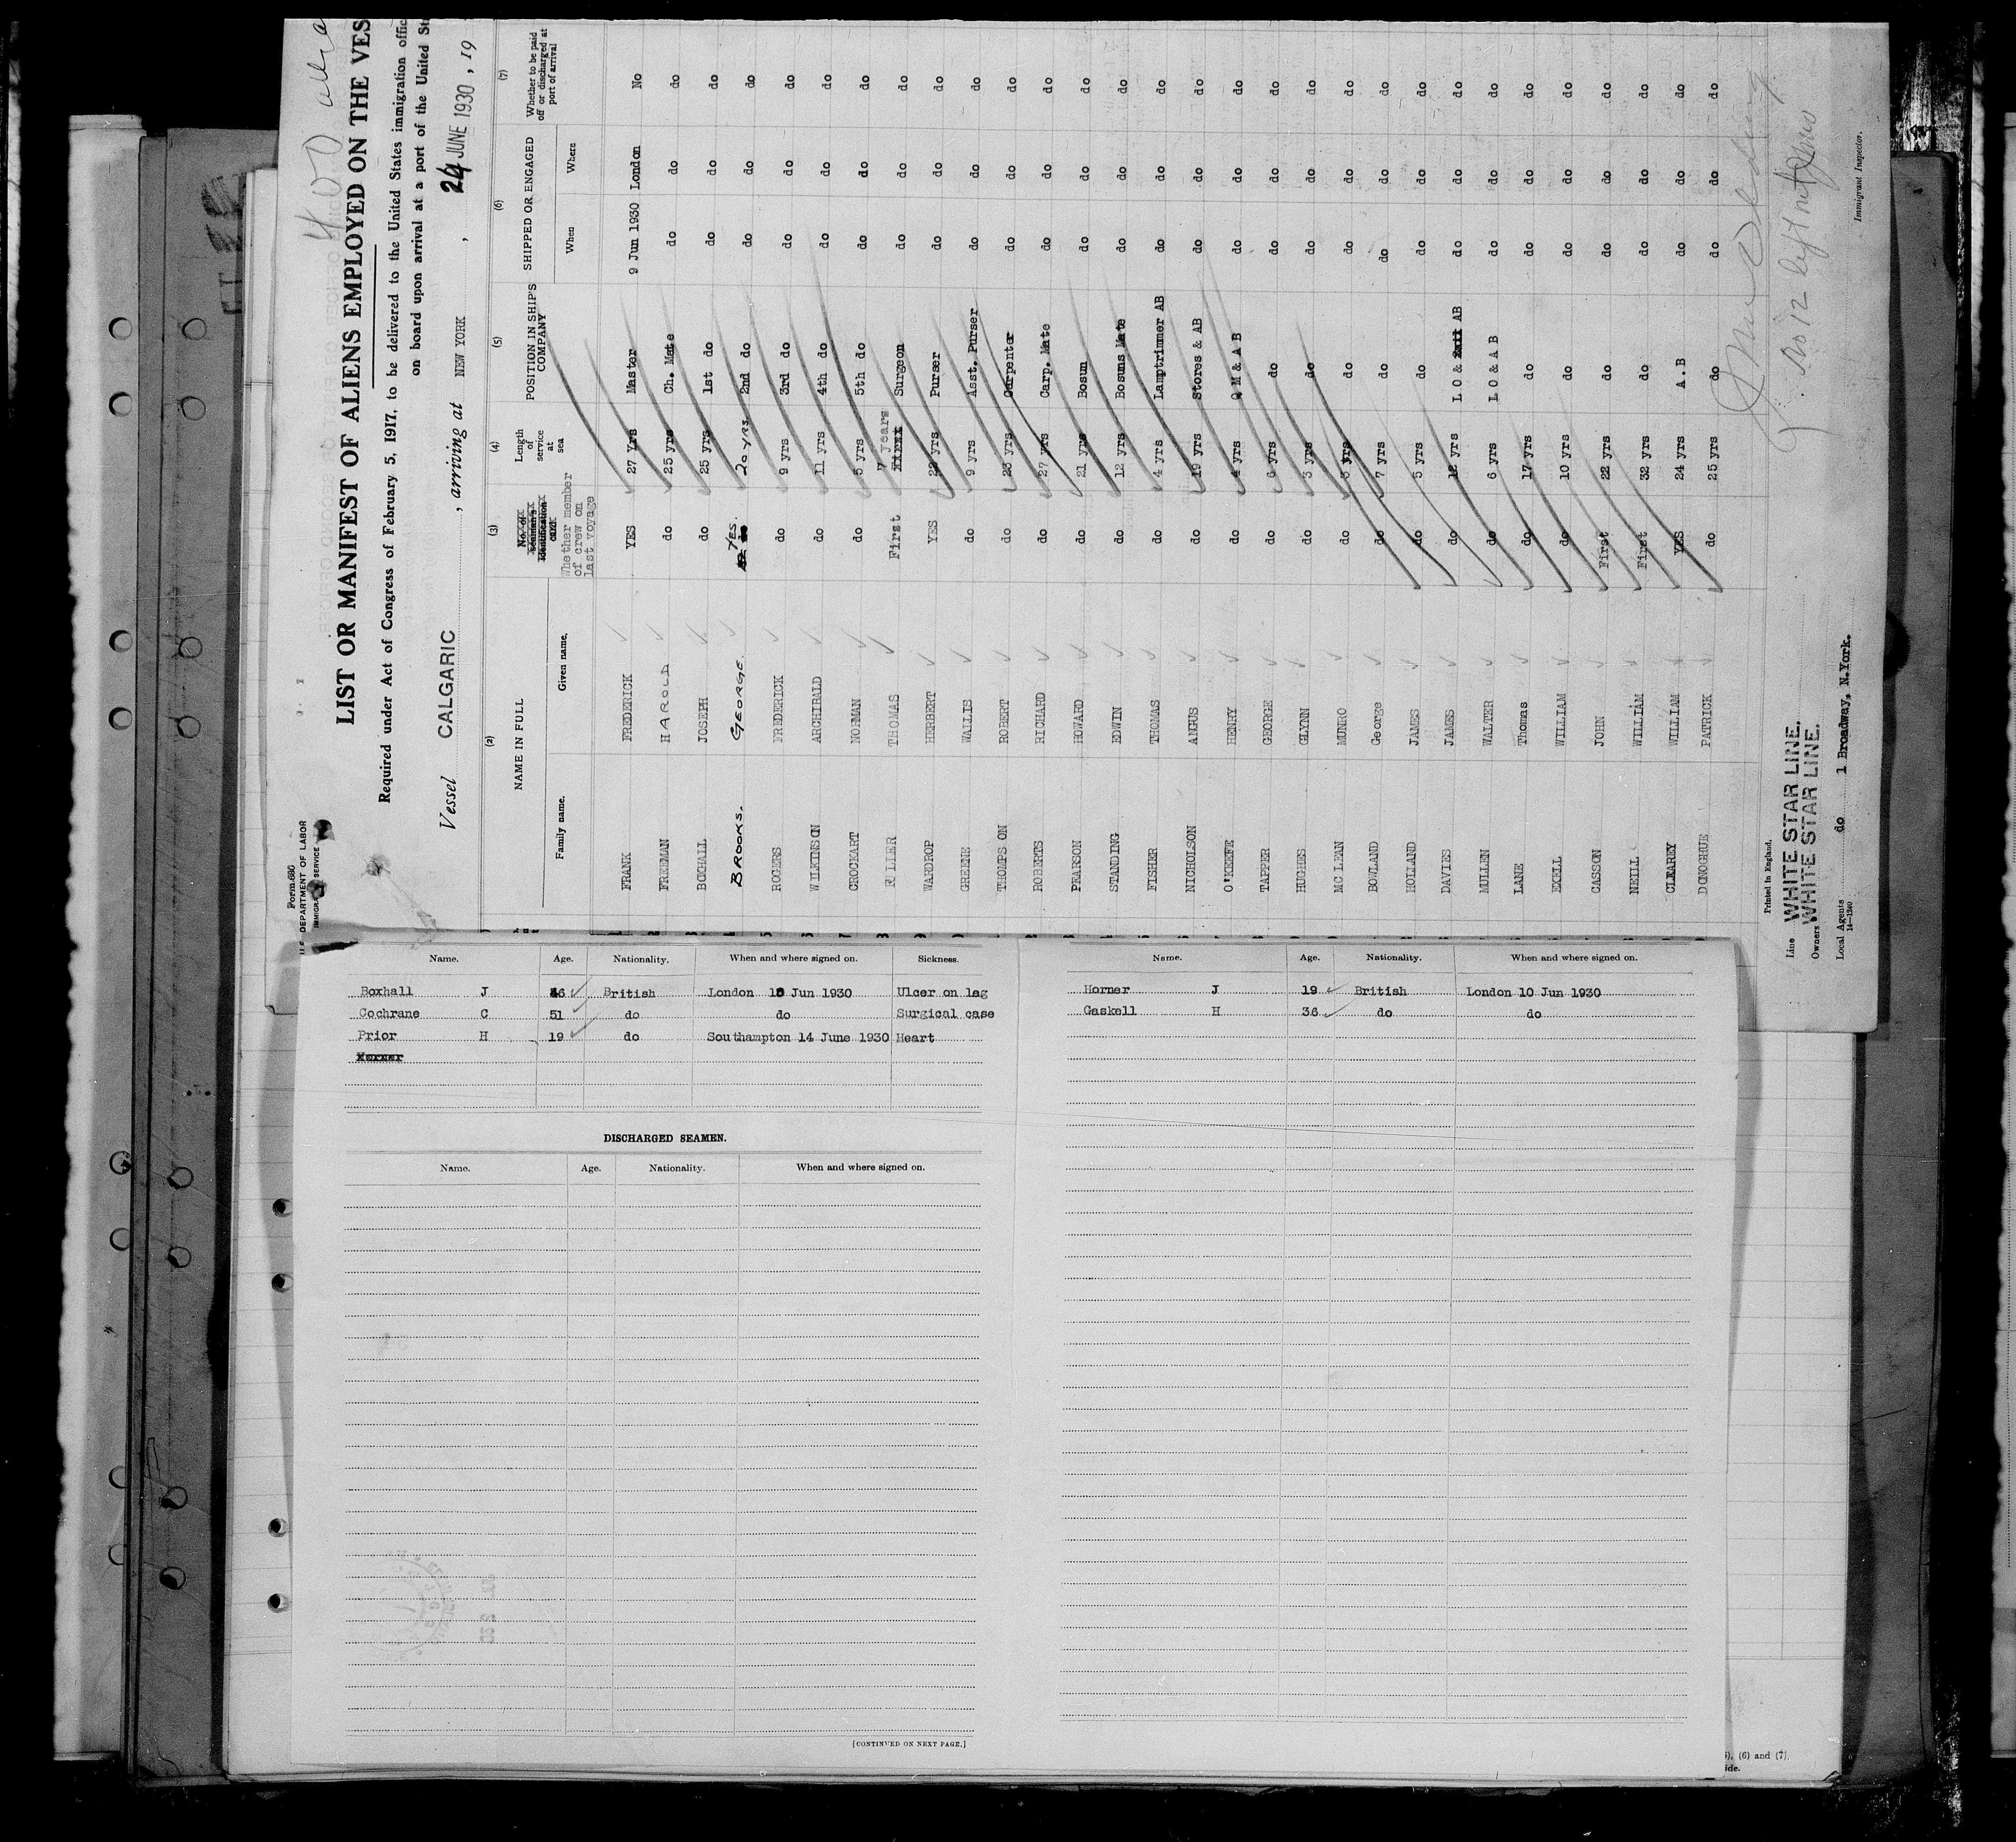 Form 680
U.S. DEPARTMENT OF LABOR
IMMIGRATION SERVICE
LIST OR MANIFEST OF ALIENS EMPLOYED ON THE VES
Required under Act of Congress of February 5, 1917, to be delivered to the United States immigration offic
on board upon arrival at a port of the United St
Vessel CALGARIC , arriving at NEW YORK , 24 JUNE 1930 , 19
(2) (3) (4) (5) (6) (7)
NAME IN FULL
Family name. Given name.
No. of seaman's identification card
Whether member of crew on last voyage
Length of service at sea
POSITION IN SHIP'S COMPANY
SHIPPED OR ENGAGED
When Where
Whether to be paid off or discharged at port of arrival
FRANK FREDERICK YES 27 yrs Master 9 Jun 1930 London No
FREEMAN HAROLD do 25 yrs Ch. Mate do do do
BOXHALL JOSEPH do 25 yrs 1st do do do do
BROOKS. GEORGE. YES. 20 YRS. 2nd do do do do
ROGERS FREDERICK do 9 yrs 3rd do do do do
WILKINSON ARCHIBALD do 11 yrs 4th do do do do
CROCKART NORMAN do 5 yrs 5th do do do do
FULLER THOMAS First 7 years Surgeon do do do
WARDROP HERBERT YES 22 yrs Purser do do do
GREENE WALLIS do 9 yrs Asst. Purser do do do
THOMPSON ROBERT do 23 yrs Carpenter do do do
ROBERTS RICHARD do 27 yrs Carp. Mate do do do
PEARSON HOWARD do 21 yrs Bosun do do do
STANDING EDWIN do 12 yrs Bosuns Mate do do do
FISHER THOMAS do 4 yrs Lamptrimmer AB do do do
NICHOLSON ANGUS do 19 yrs Stores & AB do do do
O'KEEFE HENRY do 4 yrs Q M & A B do do do
TAPPER GEORGE do 6 yrs do do do do
HUGHES GLYNN do 3 yrs do do do do
MC LEAN MUNRO do 3 yrs do do do do
BOWLAND George do 7 yrs do do do do
HOLLAND JAMES do 5 yrs do do do do
DAVIES JAMES do 12 yrs L O & AB do do do
MULLEN WALTER do 6 yrs L O & A B do do do
LANE Thomas do 17 yrs do do do do
EXELL WILLIAM do 10 yrs do do do do
CASSON JOHN First 22 yrs do do do do
NEILL WILLIAM First 32 yrs do do do do
CLEAREY WILLIAM YES 24 yrs A.B do do do
DONOGHUE PATRICK do 25 yrs do do do do
Printed in England.
Line WHITE STAR LINE.
Owners WHITE STAR LINE.
Local Agents do 1 Broadway, N.York.
14—1240
Immigrant Inspector.
Name. Age. Nationality. When and where signed on. Sickness.
Boxhall J 46 British London 10 Jun 1930 Ulcer on leg
Cochrane C 51 do do Surgical case
Prior H 19 do Southampton 14 June 1930 Heart
DISCHARGED SEAMEN.
Name. Age. Nationality. When and where signed on.
[CONTINUED ON NEXT PAGE.]
Name. Age. Nationality. When and where signed on.
Horner J 19 British London 10 Jun 1930
Gaskell H 36 do do
), (6) and (7).
ide.